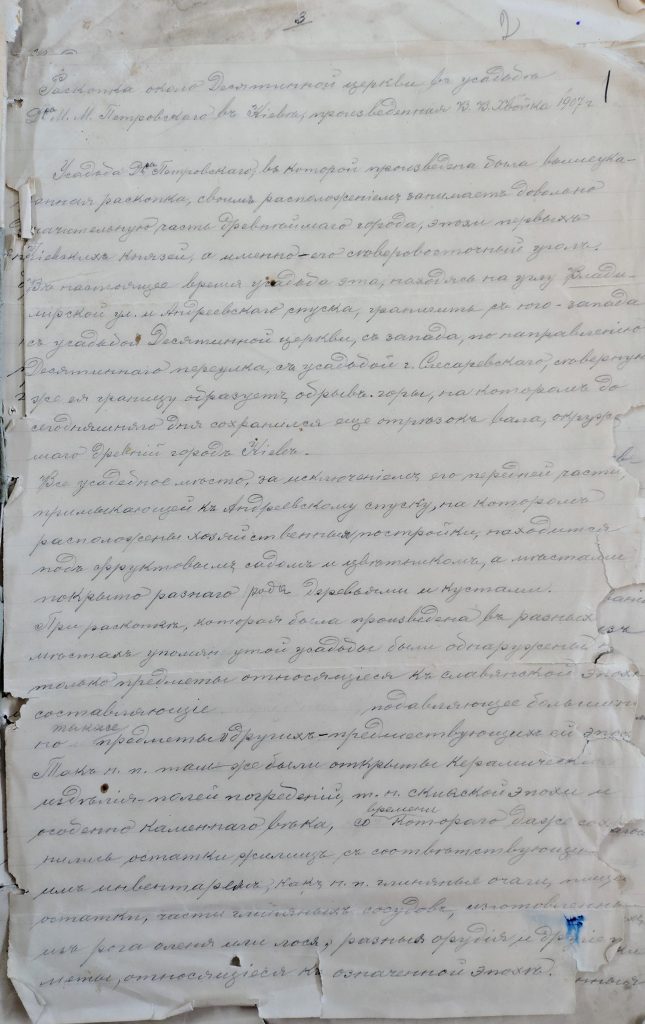 3
2
1
Раскопка около Десятинной церкви въ усадьбѣ
Д-ра М. М. Петровскаго въ Кіевѣ, произведенная В. В. Хвойка 1907 г.
Усадьба Д-ра Петровскаго, въ которой произведена была вышеука-
занная раскопка, своимъ расположеніемъ занимаетъ довольно
значительную часть древнѣйшаго города, эпохи первыхъ
Кіевскихъ князей, а именно - его сѣверовосточный уголъ.
Въ настоящее время усадьба эта, находясь на углу Влади-
мирской ул. и Андреевскаго спуска, граничитъ съ юго-запада
съ усадьбой Десятинной церкви, съ запада, по направленію
Десятиннаго переулка, съ усадьбой г. Слюсаревскаго, сѣверную
же ея границу образуетъ обрывъ горы, на которомъ до
сегодняшняго дня сохранился еще отрѣзокъ вала, окруж
шаго древній городъ Кіевъ.
Все усадебное мѣсто, за исключеніемъ его передней части,
примыкающей къ Андреевскому спуску, на которомъ
расположены хозяйственныя постройки, находится
подъ фруктовымъ садомъ и цвѣтникомъ, а мѣстами
покрыто разнаго рода деревьями и кустами.
При раскопкѣ, которая была произведена въ разныхъ
мѣстахъ упомянутой усадьбы были обнаружены н
только предметы относящіеся къ славянской эпохѣ
составляющіе подавляющее большинс
но также предметы и другихъ - предшествующихъ ей эпох
Такъ н. п. тамъ же были открыты керамическія
издѣлія полей погребеній, т. н. скиѳской эпохи и
особенно каменнаго вѣка, времени котораго даже сох
нились остатки жилищъ съ соотвѣтствующи-
имъ инвентаремъ, какъ н. п. глиняные очаги, пище
остатки, части глиняныхъ сосудовъ, изготовленныя
изъ рога оленя или лося, разныя орудія и другіе
меты, относящіеся къ означенной эпохѣ.